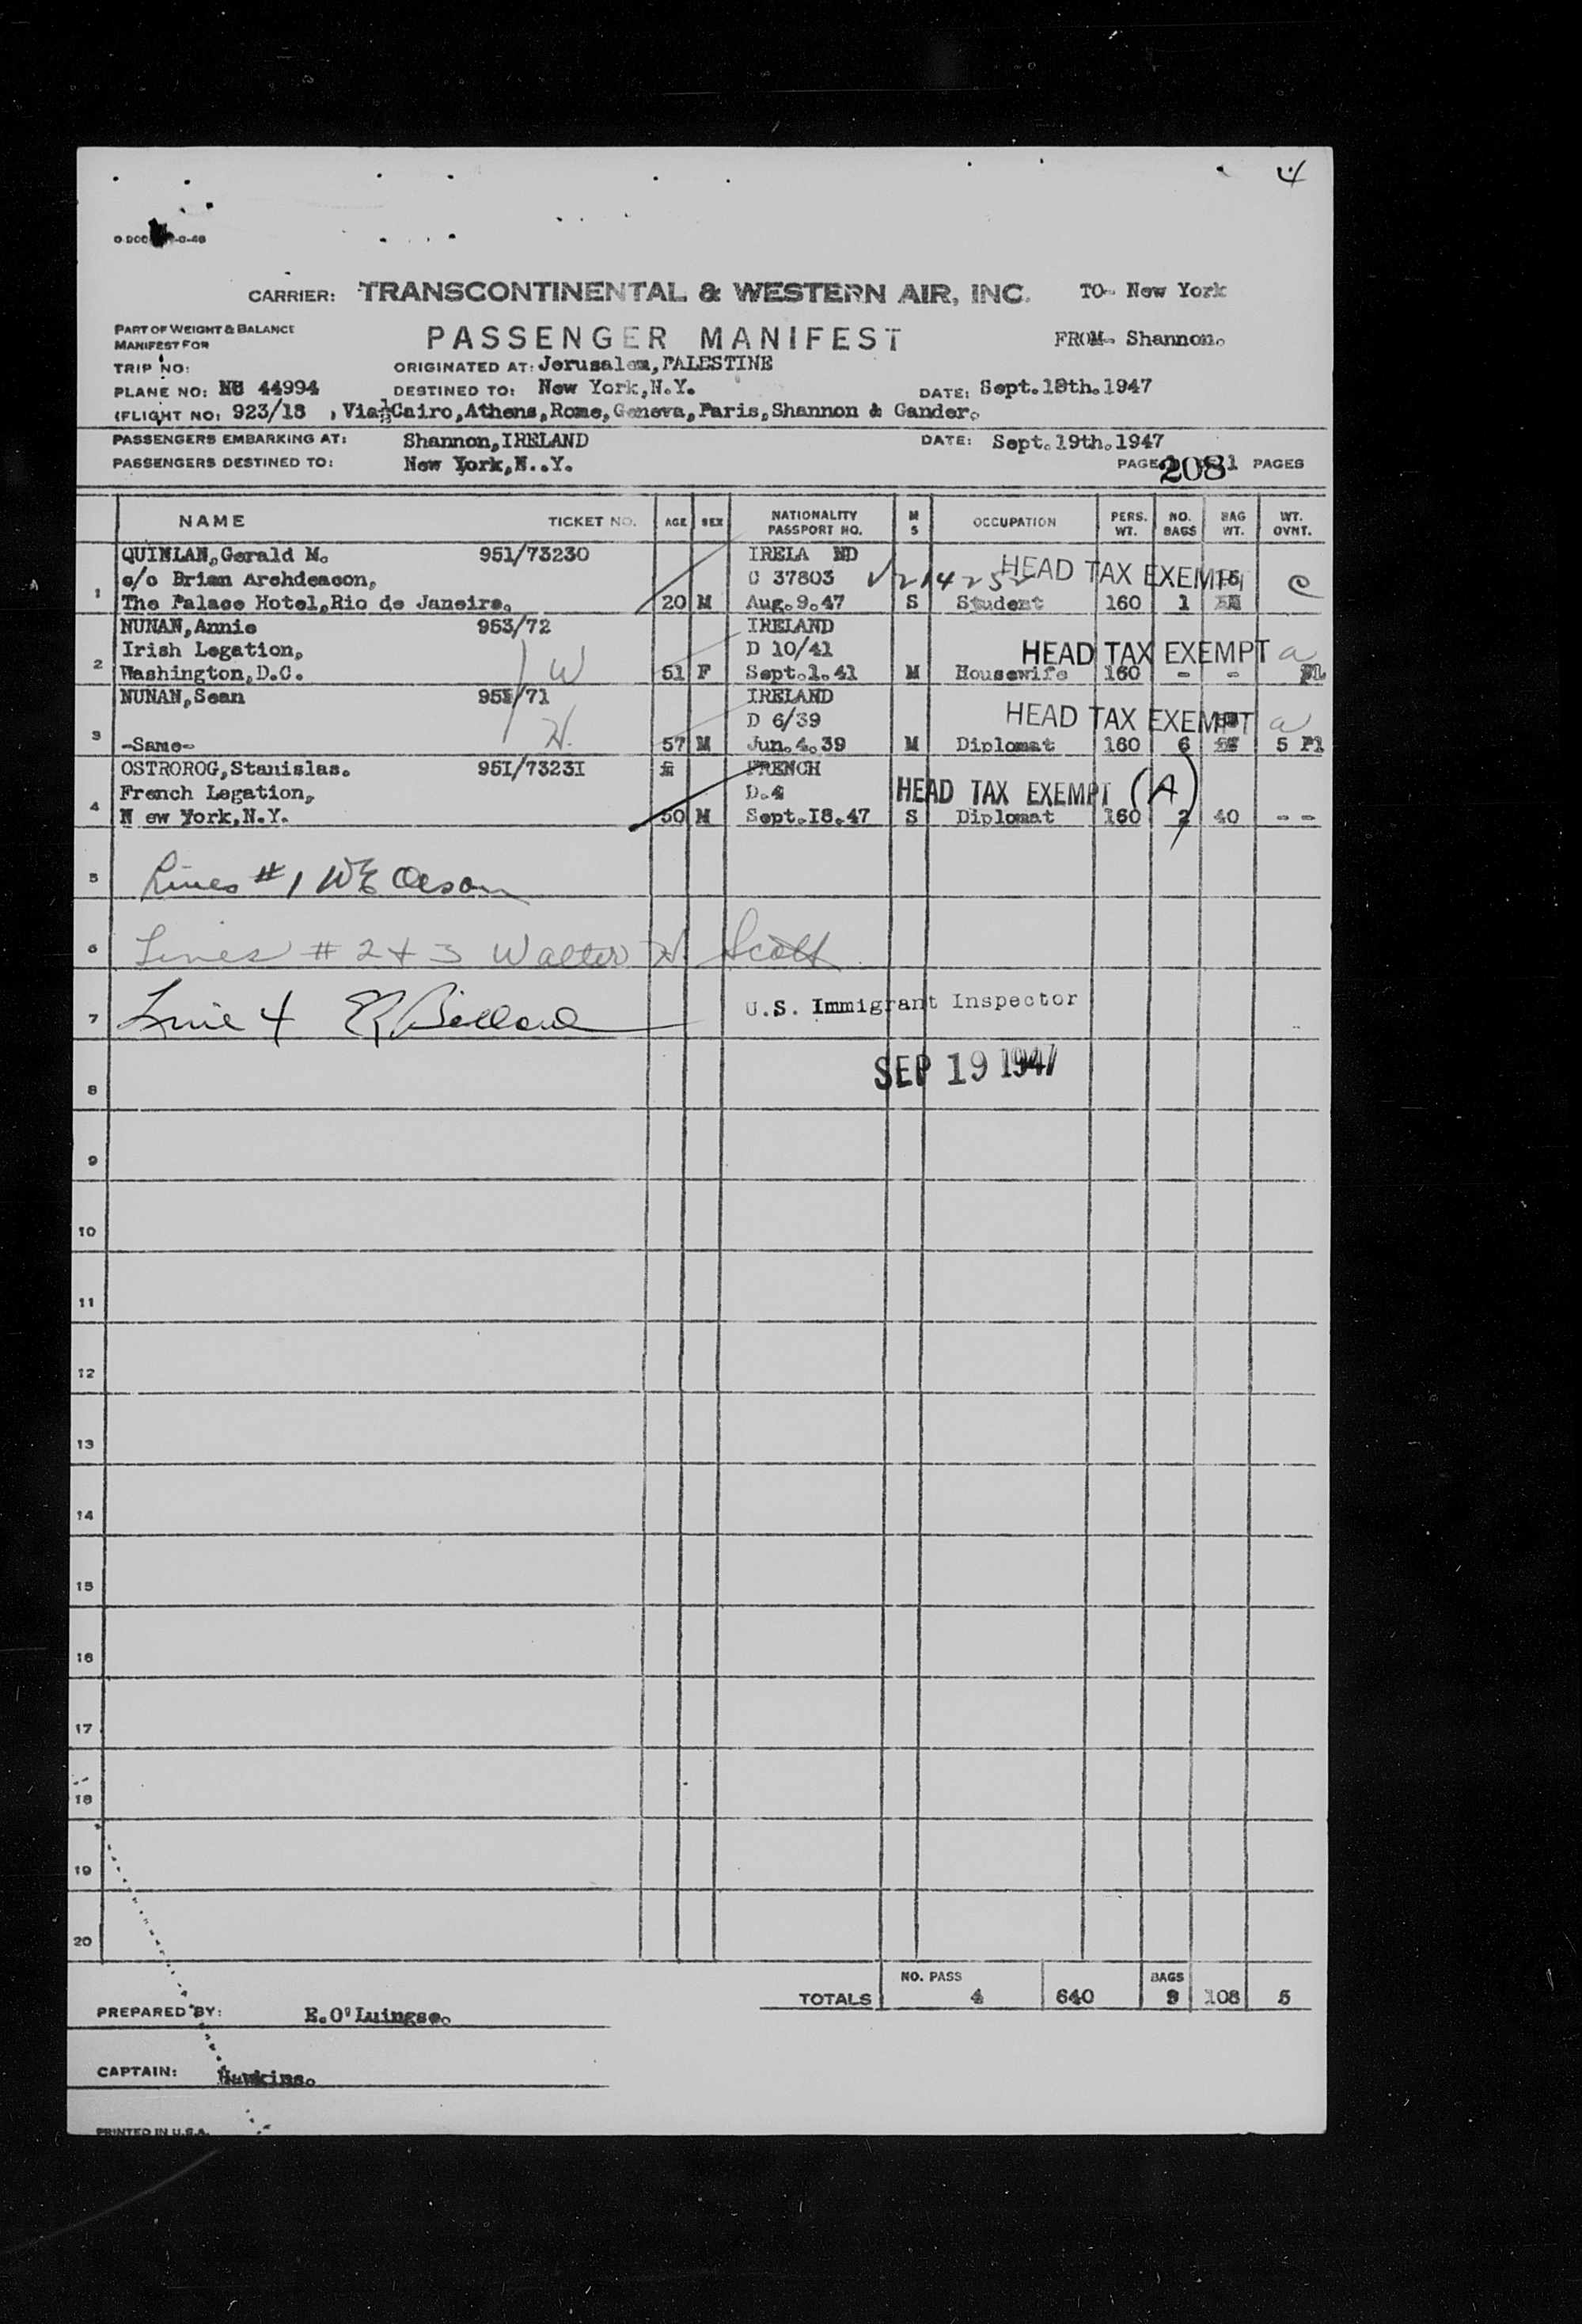 4
CARRIER: TRANSCONTINENTAL & WESTERN AIR, INC. TO- New York
PART OF WEIGHT & BALANCE
MANIFEST FOR
PASSENGER MANIFEST FROM- Shannon.
TRIP NO: ORIGINATED AT: Jerusalem, PALESTINE
PLANE NO: 44994 DESTINED TO: New York, N.Y. DATE: Sept. 18th. 1947
(FLIGHT NO: 923/18 , Via Cairo, Athens, Rome, Geneva, Paris, Shannon & Gander.
PASSENGERS EMBARKING AT: Shannon, IRELAND DATE: Sept. 19th. 1947
PASSENGERS DESTINED TO: New York, N..Y. PAGE 208 1 PAGES
NAME TICKET NO. AGE SEX NATIONALITY PASSPORT NO. M S OCCUPATION PERS. WT. NO. BAGS BAG WT. WT. OVNT.
QUINLAN, Gerald M. 951/73230 IRELA ND
c/o Brian Archdeacon, C 37803 HEAD TAX EXEMPT C
1 The Palace Hotel, Rio de Janeiro. 20 M Aug. 9. 47 S Student 160 1
NUNAN, Annie 953/72 IRELAND
Irish Legation, D 10/41 HEAD TAX EXEMPT a
2 Washington, D.C. W 51 F Sept. 1. 41 M Housewife 160 - -
NUNAN, Sean /71 IRELAND
D 6/39 HEAD TAX EXEMPT a
3 -Same- H. 57 M Jun. 4. 39 M Diplomat 160 6 5 Pl
OSTROROG, Stanislas. 95I/7323I FRENCH
French Legation, D.4 HEAD TAX EXEMPT (A)
4 N ew York, N.Y. 50 M Sept. I8. 47 S Diplomat 160 2 40 - -
5 Lines #1 WE Olson
6 Lines # 2 + 3 Walter H. Scott
7 Line 4 U.S. Immigrant Inspector
8 SEP 19 1947
9
10
11
12
13
14
15
16
17
18
19
20
NO. PASS BAGS
TOTALS 4 640 9 108 5
PREPARED BY: E. O'Luingse.
CAPTAIN: Hawkins.
PRINTED IN U.S.A.